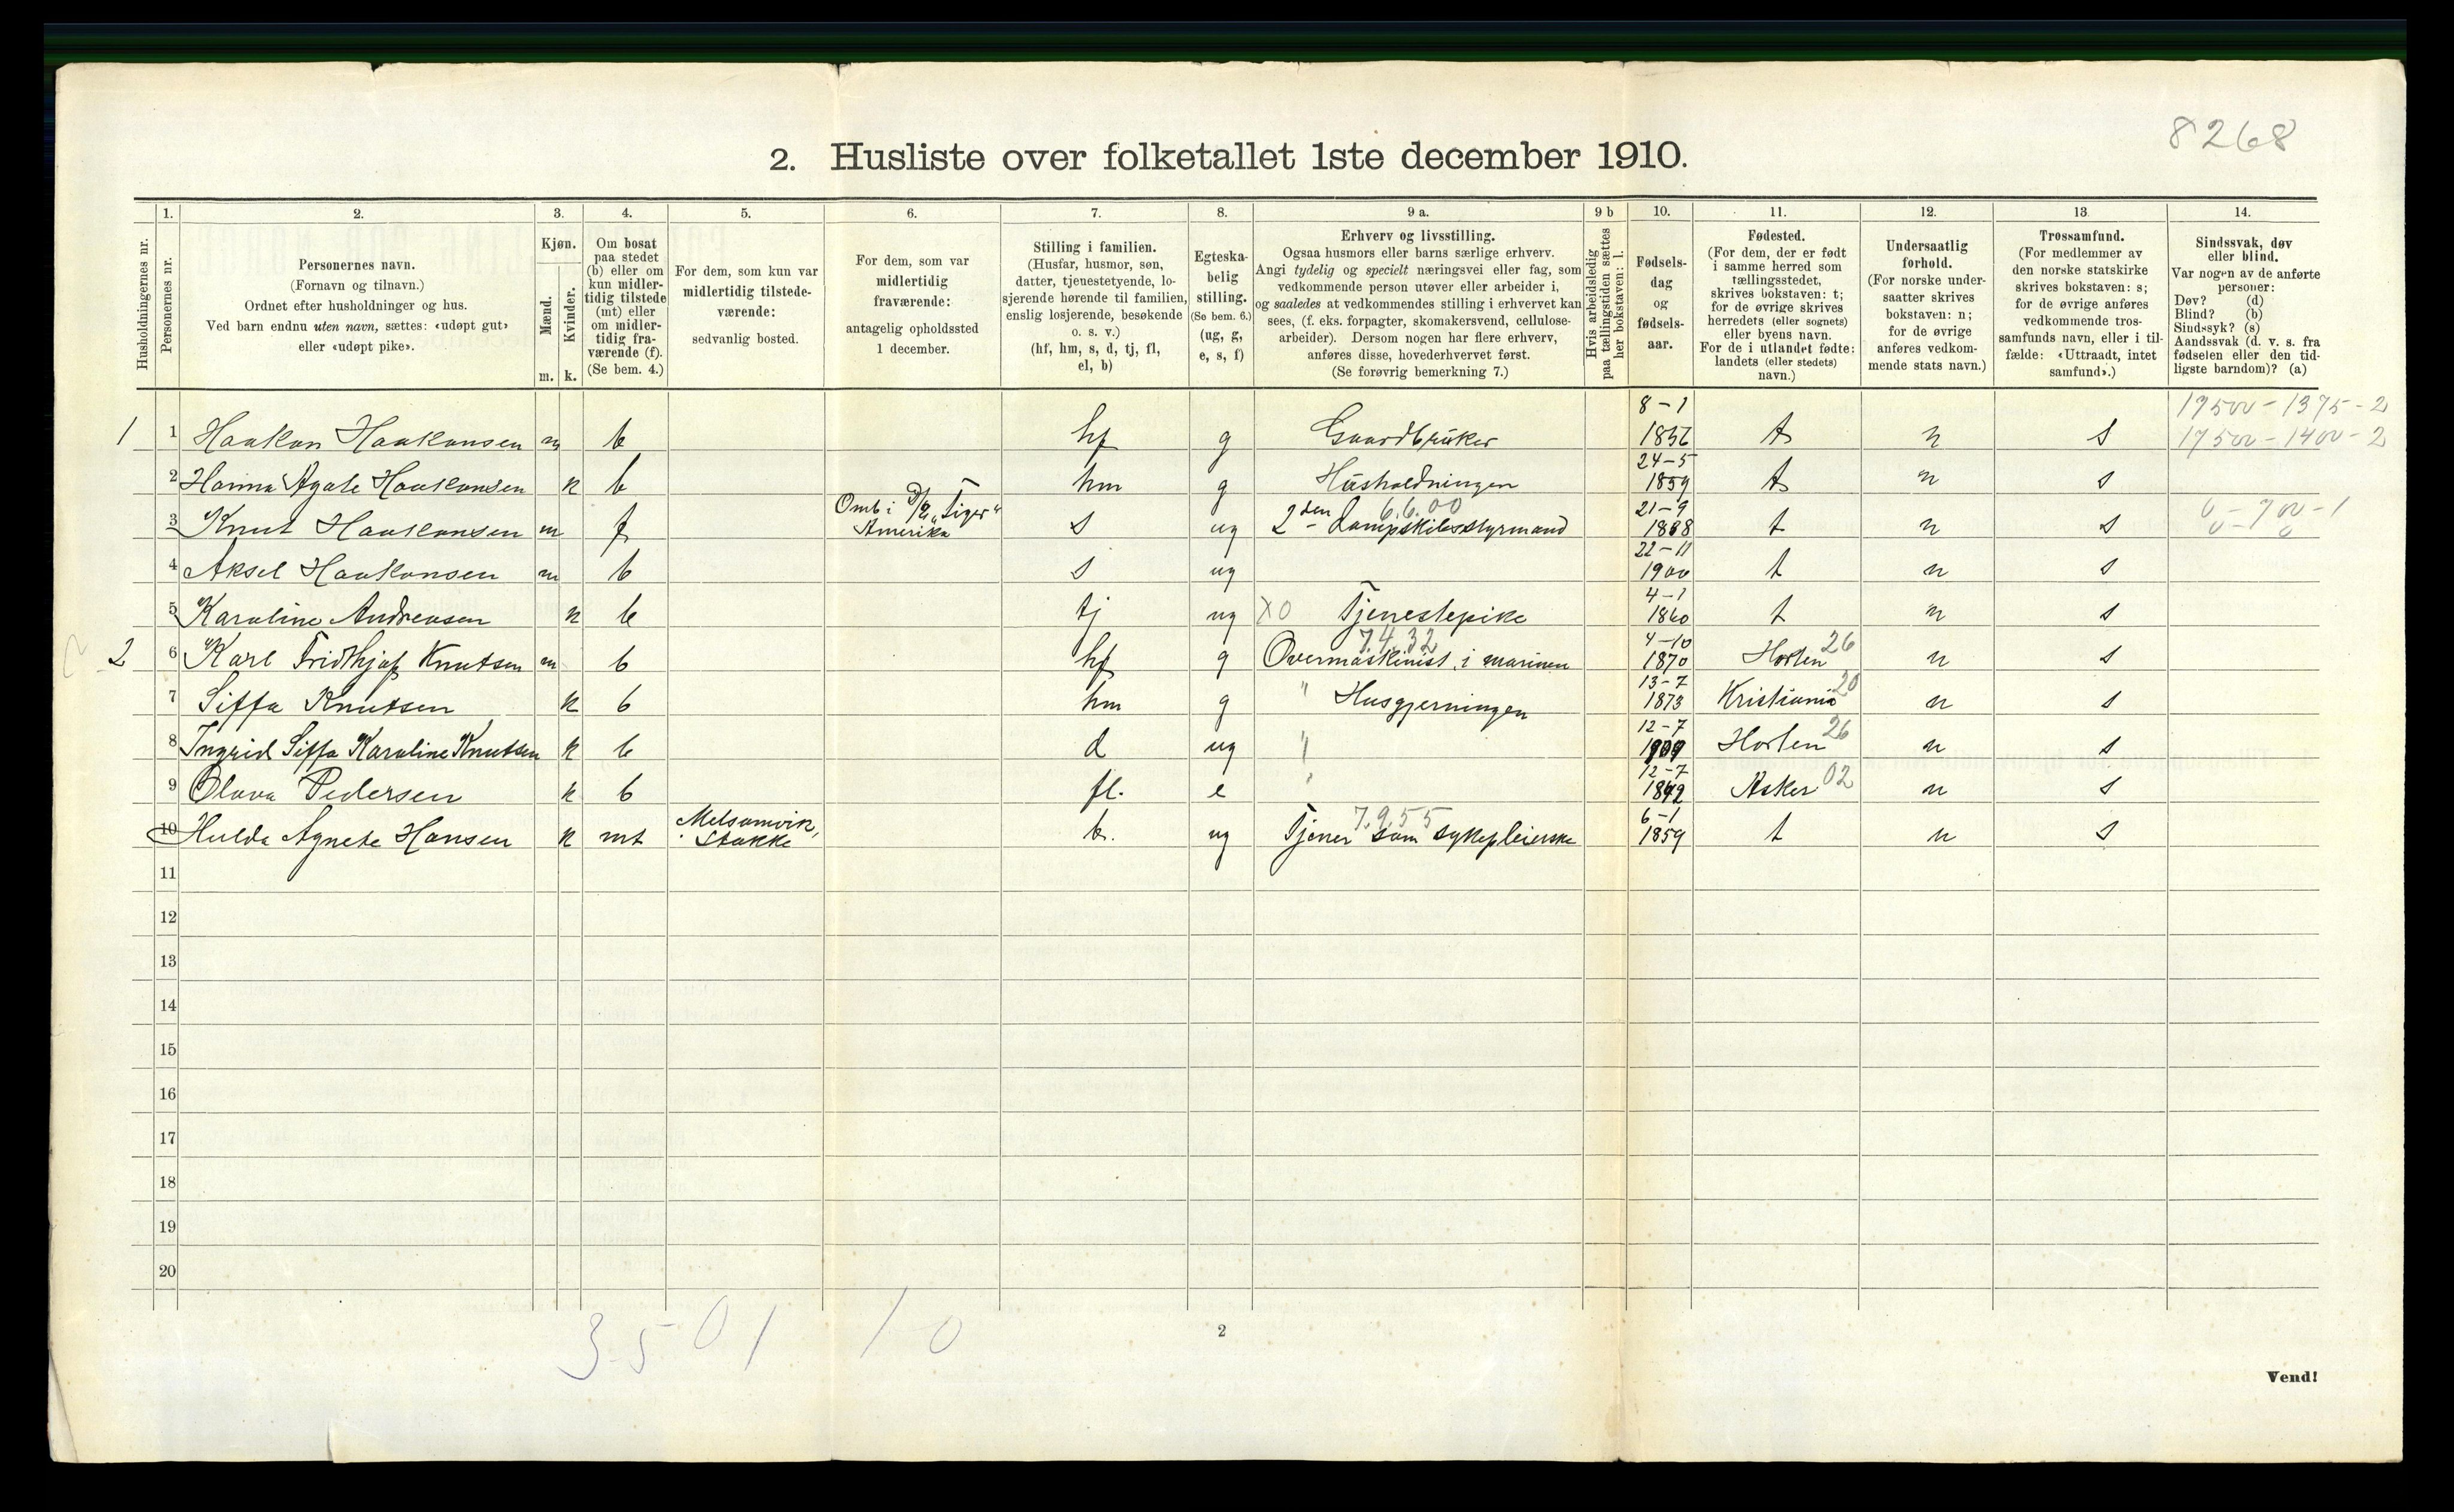 8268
2. Husliste over folketallet 1ste december 1910.
Husholdningernes nr.
1. Personernes nr.
2. Personernes navn.
(Fornavn og tilnavn.)
Ordnet efter husholdninger og hus.
Ved barn endnu uten navn, sættes: «udøpt gut»
eller «udøpt pike».
3. Kjøn.
Mænd. m.
Kvinder. k.
4. Om bosat
paa stedet
(b) eller om
kun midler-
tidig tilstede
(mt) eller
om midler-
tidig fra-
værende (f).
(Se bem. 4.)
5. For dem, som kun var
midlertidig tilstede-
værende:
sedvanlig bosted.
6. For dem, som var
midlertidig
fraværende:
antagelig opholdssted
1 december.
7. Stilling i familien.
(Husfar, husmor, søn,
datter, tjenestetyende, lo-
sjerende hørende til familien,
enslig losjerende, besøkende
o. s. v.)
(hf, hm, s, d, tj, fl,
el, b)
8. Egteska-
belig
stilling.
(Se bem. 6.)
(ug, g,
e, s, f)
9 a. Erhverv og livsstilling.
Ogsaa husmors eller barns særlige erhverv.
Angi tydelig og specielt næringsvei eller fag, som
vedkommende person utøver eller arbeider i,
og saaledes at vedkommendes stilling i erhvervet kan
sees, (f. eks. forpagter, skomakersvend, cellulose-
arbeider). Dersom nogen har flere erhverv,
anføres disse, hovederhvervet først.
(Se forøvrig bemerkning 7.)
9 b Hvis arbeidsledig
paa tællingstiden sættes
her bokstaven: l.
10. Fødsels-
dag
og
fødsels-
aar.
11. Fødested.
(For dem, der er født
i samme herred som
tællingsstedet,
skrives bokstaven: t;
for de øvrige skrives
herredets (eller sognets)
eller byens navn.
For de i utlandet fødte:
landets (eller stedets)
navn.)
12. Undersaatlig
forhold.
(For norske under-
saatter skrives
bokstaven: n;
for de øvrige
anføres vedkom-
mende stats navn.)
13. Trossamfund.
(For medlemmer av
den norske statskirke
skrives bokstaven: s;
for de øvrige anføres
vedkommende tros-
samfunds navn, eller i til-
fælde: «Uttraadt, intet
samfund».)
14. Sindssvak, døv
eller blind.
Var nogen av de anførte
personer:
Døv? (d)
Blind? (b)
Sindssyk? (s)
Aandssvak (d. v. s. fra
fødselen eller den tid-
ligste barndom)? (a)
1 1 Haakon Haakonsen m b hf g Gaardbruker 8-1 1856 t n s 17500-1375-2 17500-1400-2
2 Hanna Agate Haakonsen k b hm g Husholdningen 24-5 1859 t n s
3 Knut Haakonsen m f Omb i D/S "Tiger" Amerika s ug 2den Dampskibsstyrmand 6.6.00 21-9 1888 t n s 0-700-1
4 Aksel Haakonsen m b s ug 22-11 1900 t n s
5 Karoline Andreasen k b tj ug XO Tjenestepike 4-1 1860 t n s
2 6 Karl Fridthjof Knutsen m b hf g Overmaskinist i marinen 7.4.32 4-10 1870 Horten 26 n s
7 Siffa Knutsen k b hm g " Husgjerningen 13-7 1873 Kristiania 20 n s
8 Ingrid Siffa Karoline Knutsen k b d ug " 12-7 1909 Horten 26 n s
9 Olava Pedersen k b fl. e " 12-7 1842 Asker 02 n s
10 Hulda Agnete Hansen k mt Melsomvik, Stokke b. ug Tjener som sykepleierske 7.9.55 6-1 1859 t n s
11
12
13
14
15
16
17
18
19
20
3-5 01 10
2
Vend!